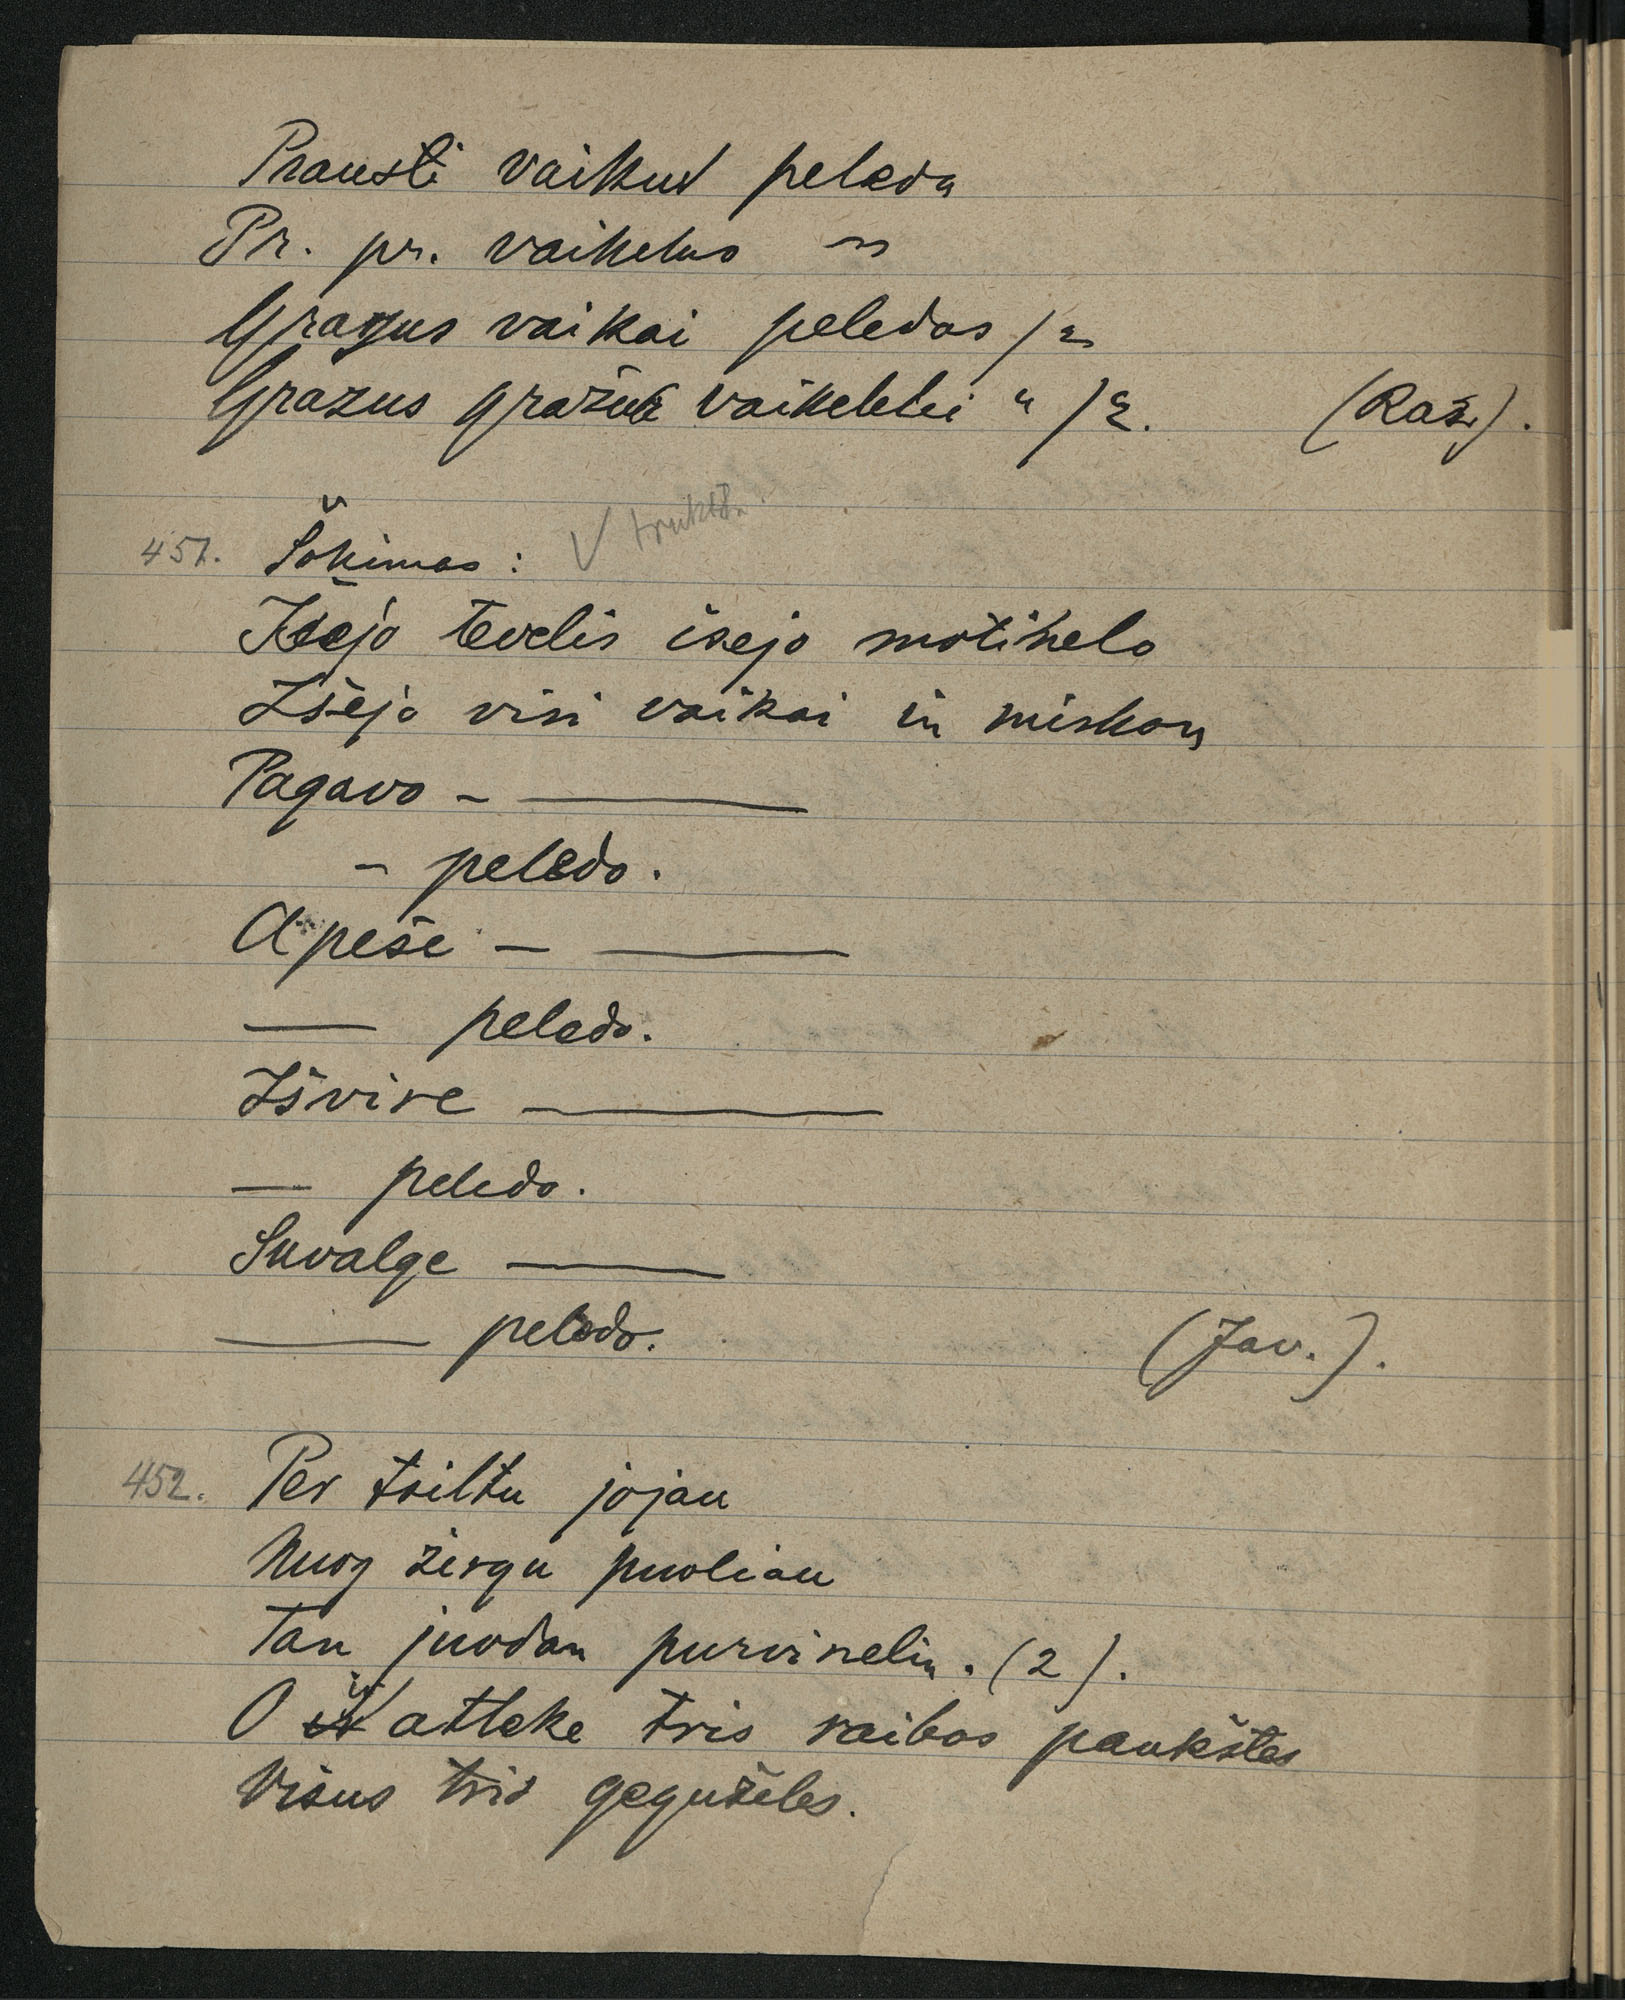 Prausti vaikus peleda
Pr. pr. vaikelus "
Grazus vaikai peledos /2
Grazus gražus vaikelelei " /2. (Raž.).
451. Šokimas: V trukšt.
Išejo tevelis išejo motinela
Išejo visi vaikai in miskan
Pagavo - ———
- peledo.
Apeše - ———
—— peledo.
Išvire ———
— peledo.
Suvalge ———
——— peledo. (Jav.).
452. Per tiiltu jojau
Nuog žirgu puoliau
Tan juodan purvinelin. (2).
O iš atleke tris raibos paukštes
Visus tris gegužėles.